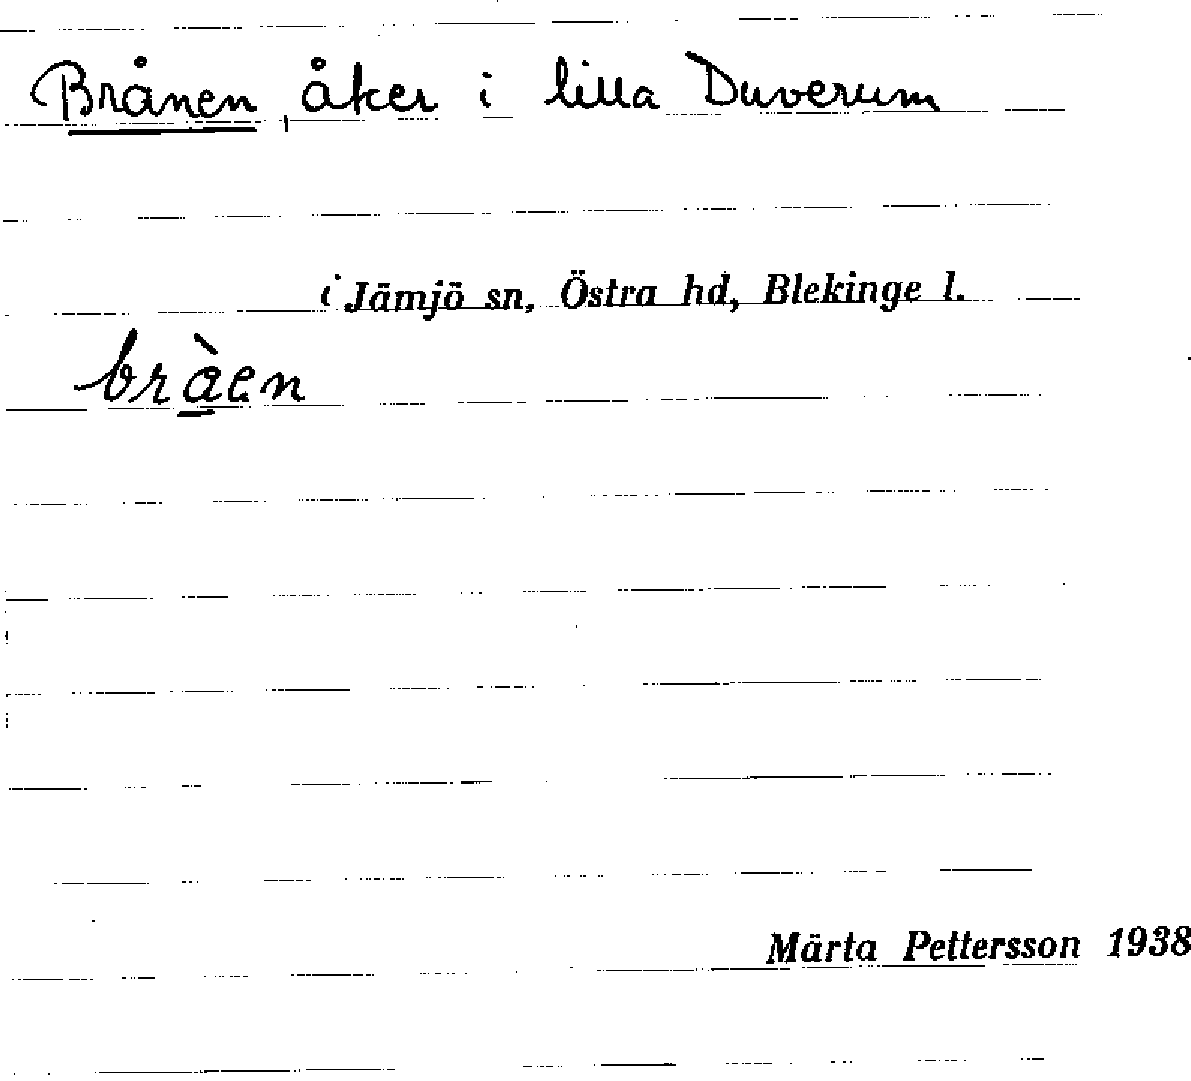 Brånen, åker i lilla Duverum
i Jämjö sn, Östra hd, Blekinge l.
bràen
Märta Pettersson 1938